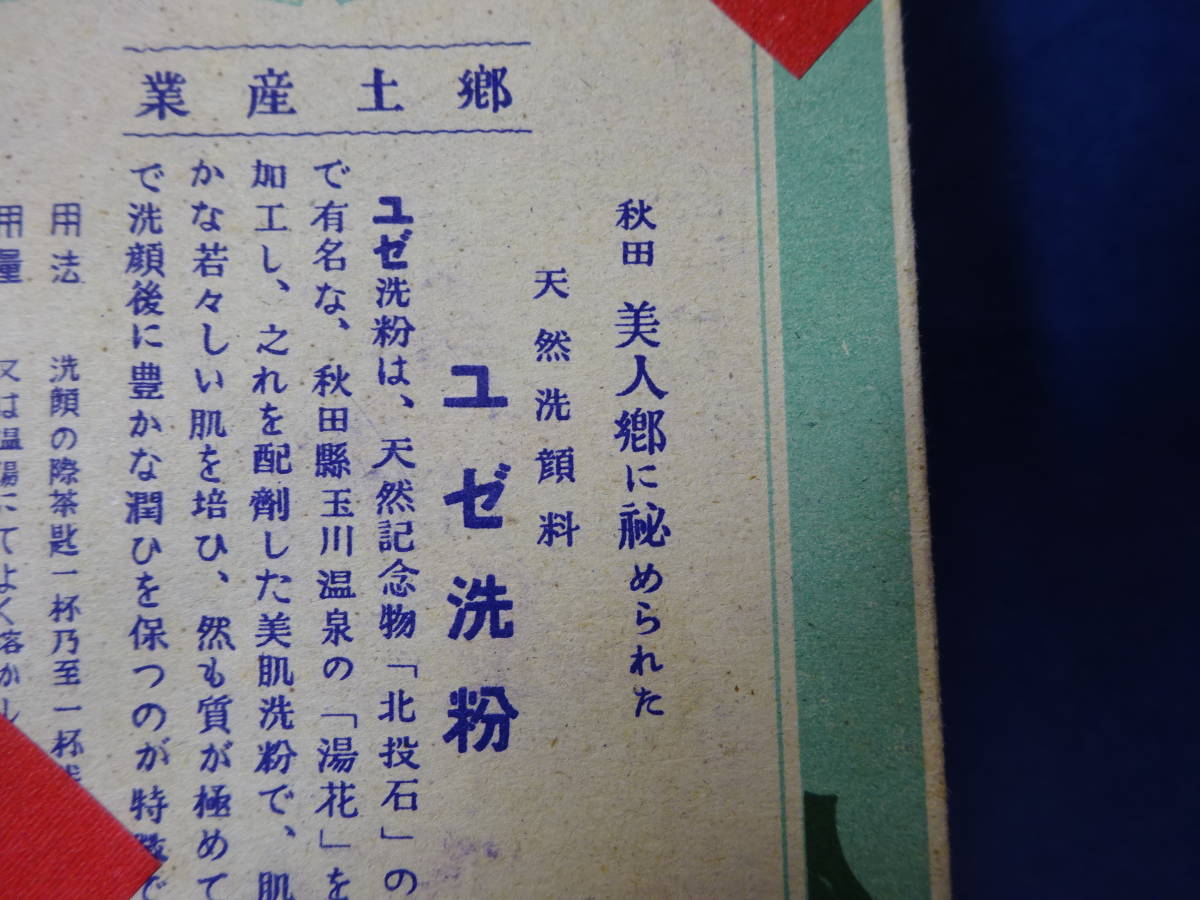 鄕土産業
秋田 美人鄕に祕められた
天然洗顔料
ユゼ洗粉
ユゼ洗粉は、天然記念物「北投石」の
で有名な、秋田縣玉川温泉の「湯花」を
加工し、之れを配劑した美肌洗粉で、肌
かな若々しい肌を培ひ、然も質が極めて
で洗顔後に豊かな潤ひを保つのが特
用法 洗顔の際茶匙一杯乃至一杯
用量 又は温湯にてよく溶かし